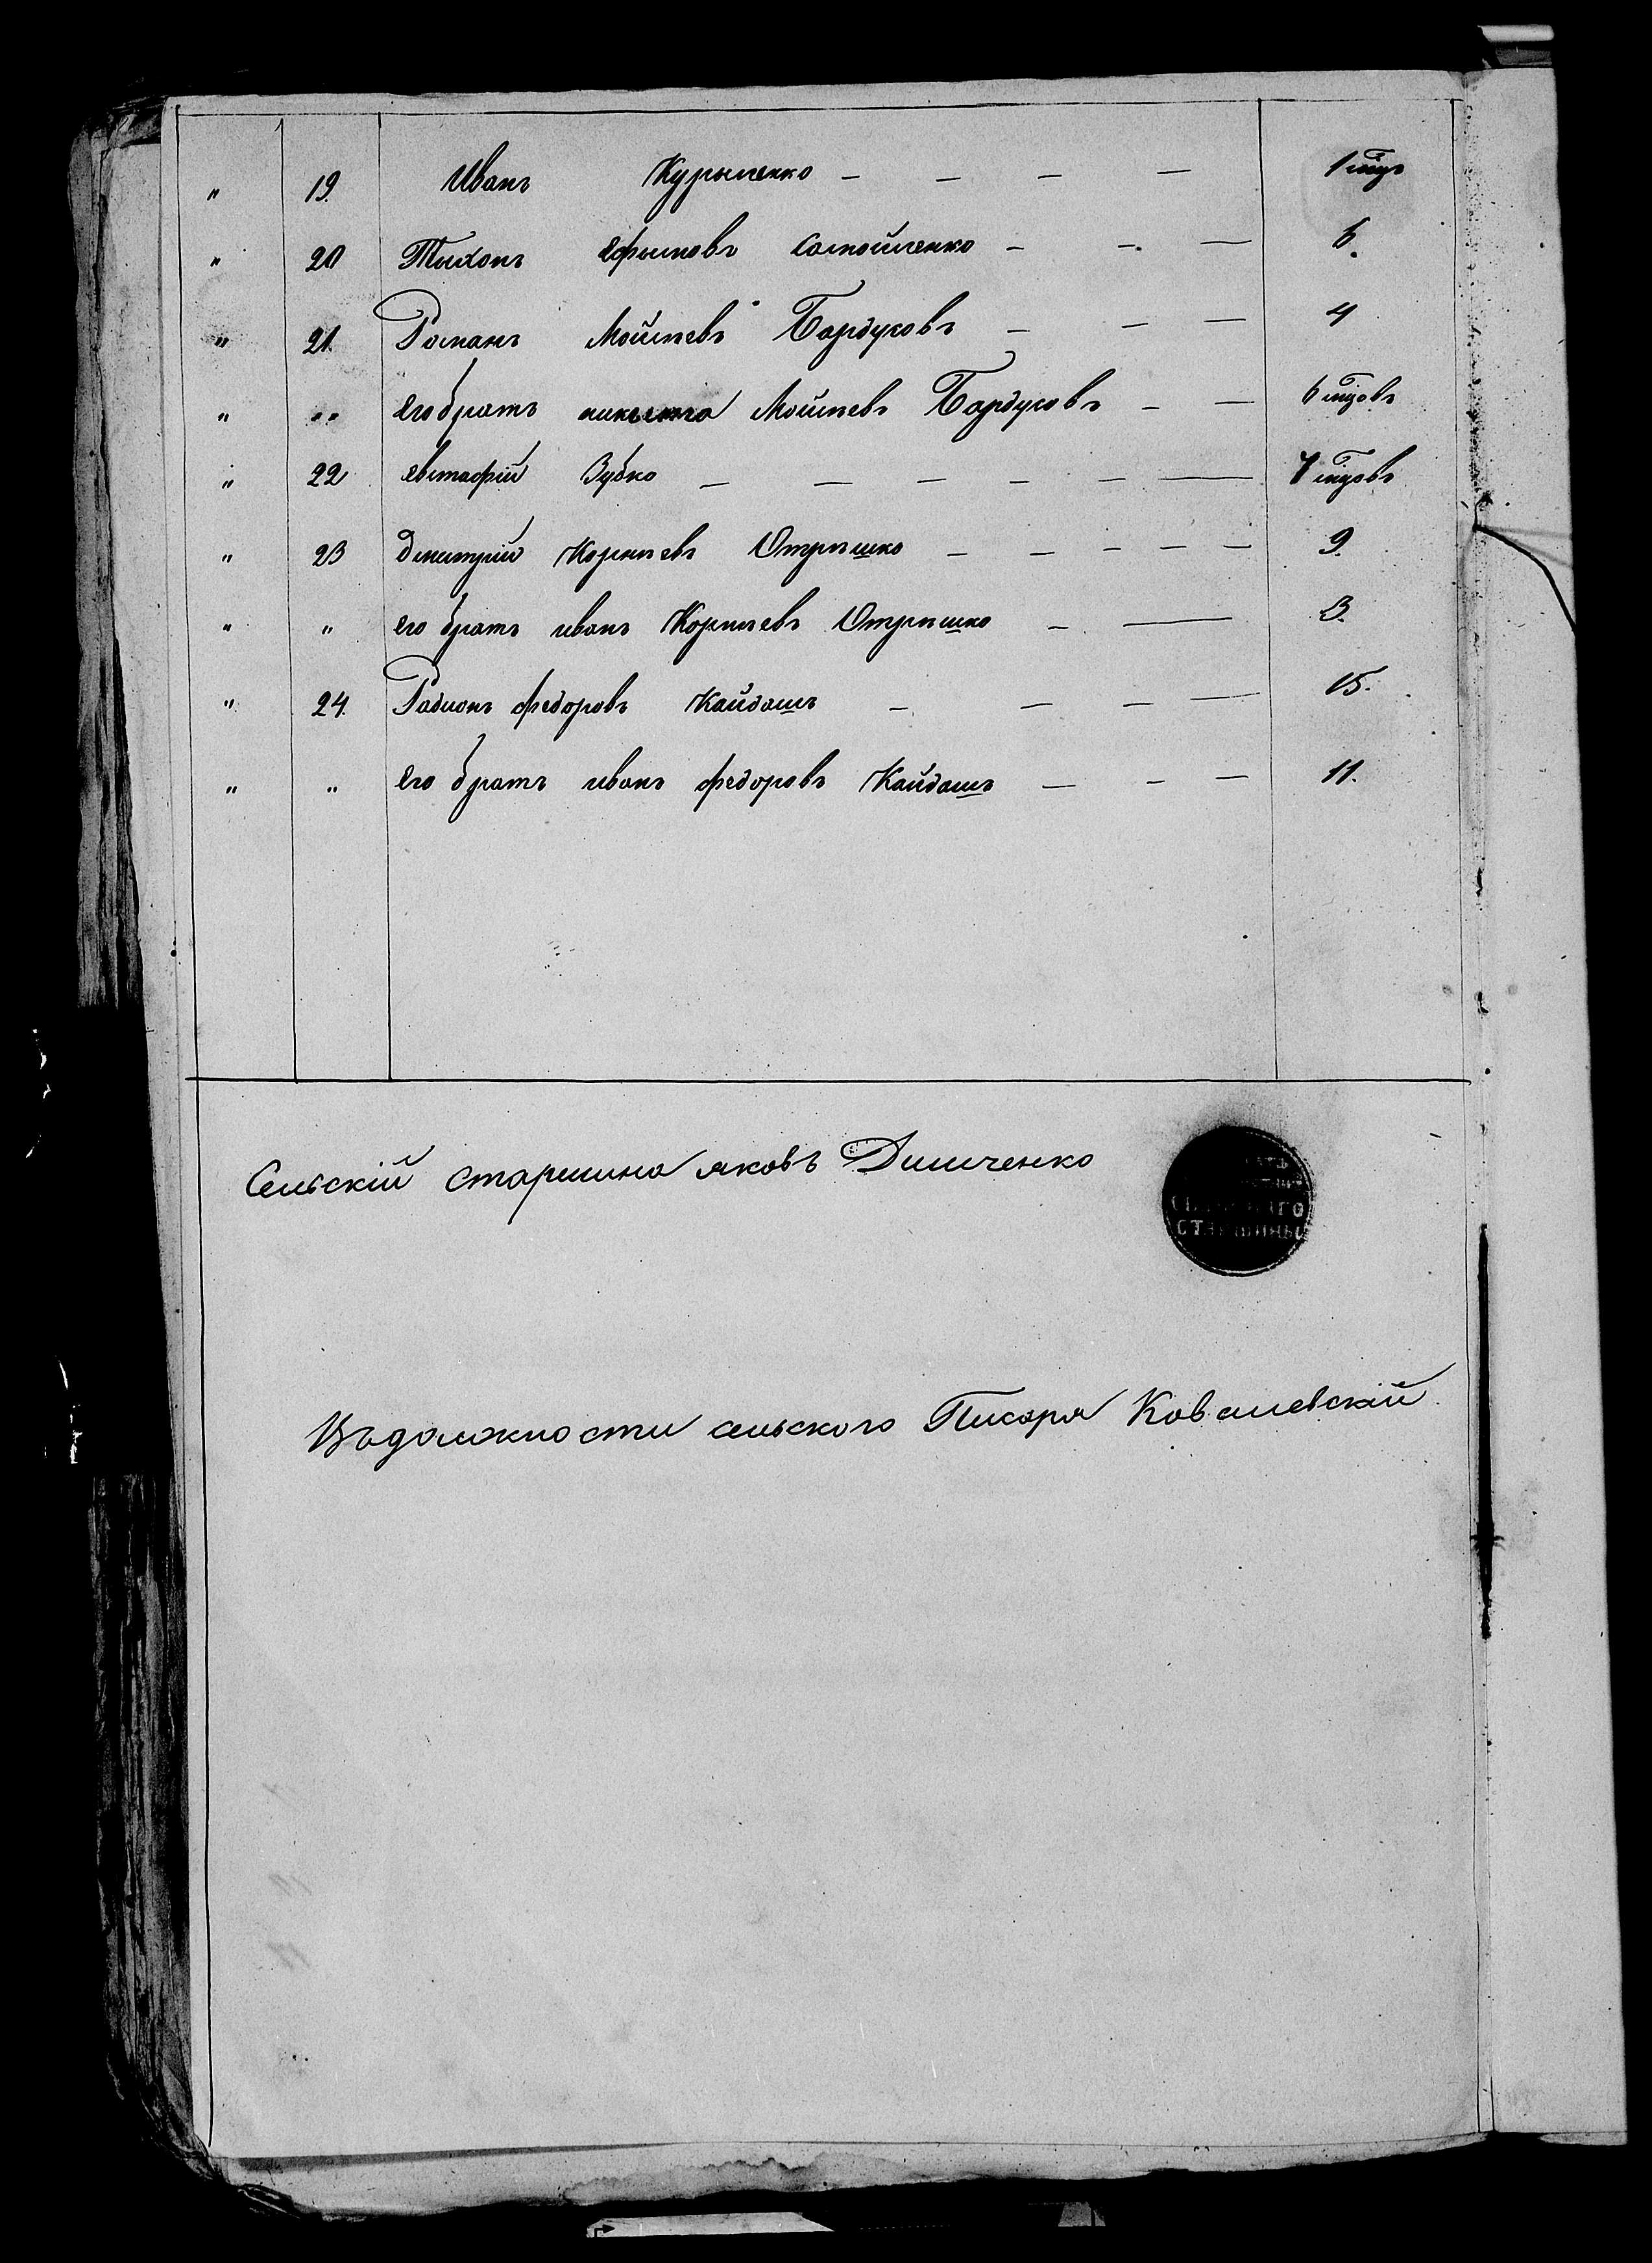 „ 19. Иванъ Курыленко — — — — 1 годъ
„ 20 Тихонъ Ефимовъ Самойленко — — — 6.
„ 21. Романъ Мойсѣевъ Бардуковъ — — — 4
„ „ его братъ никита Мойсѣевъ Бардуковъ — — 6 годовъ
„ 22 евстафій Зубко — — — — — — 7 годовъ
„ 23 Дмитрій Корнѣевъ Отришко — — — — — 9.
„ „ его братъ иванъ Корнѣевъ Отришко — — 3.
„ 24. Радионъ федоровъ Кайдашъ — — — — 15.
„ „ его братъ иванъ федоровъ Кайдашъ — — — 11.
Сельскій старшина яковъ Димченко
СТАРШИНЫ
Въ должности сельского Писаря Ковалевскій